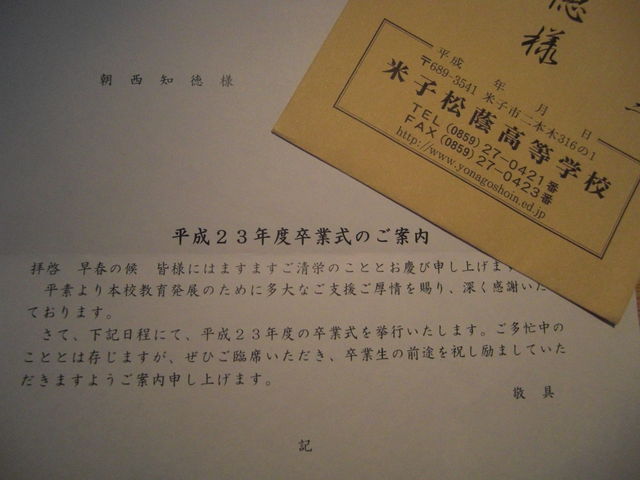 徳
様
平成　年　月　日
〒689-3541 米子市二本木316の1
米子松蔭高等学校
TEL (0859) 27-0421番
FAX (0859) 27-0423番
http://www.yonagoshoin.ed.jp
朝西知徳様
平成２３年度卒業式のご案内
拝啓　早春の候　皆様にはますますご清栄のこととお慶び申し上げます
平素より本校教育発展のために多大なご支援ご厚情を賜り、深く感謝いた
ております。
さて、下記日程にて、平成２３年度の卒業式を挙行いたします。ご多忙中の
こととは存じますが、ぜひご臨席いただき、卒業生の前途を祝し励ましていた
だきますようご案内申し上げます。
敬具
記